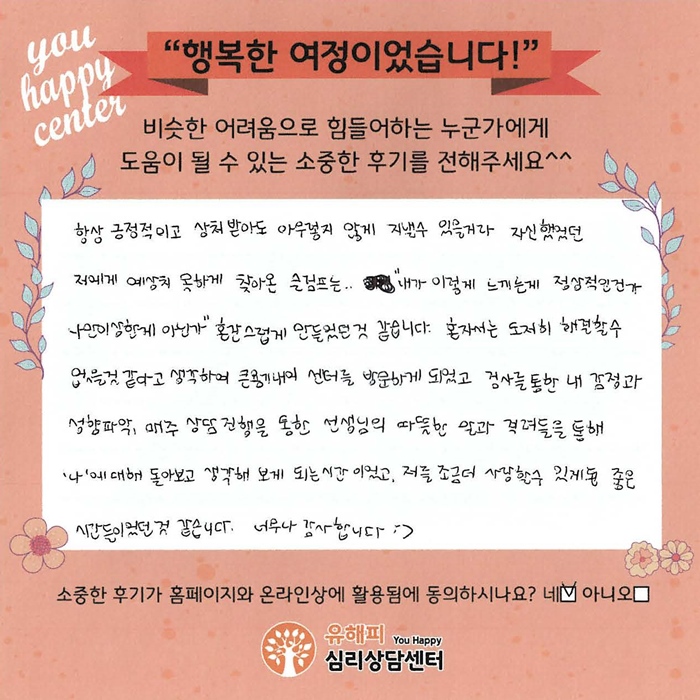 you
happy
center
“행복한 여정이었습니다!”
비슷한 어려움으로 힘들어하는 누군가에게
도움이 될 수 있는 소중한 후기를 전해주세요^^
항상 긍정적이고 상처받아도 아무렇지 않게 지낼수 있을거라 자신했었던
저에게 예상치 못하게 찾아온 슬럼프는.. "내가 이렇게 느끼는게 정상적인건가
나만이상한게 아닌가" 혼란스럽게 만들었던것 같습니다. 혼자서는 도저히 해결할수
없을것 같다고 생각하여 큰용기내어 센터를 방문하게 되었고 검사를통한 내 감정과
성향파악, 매주 상담진행을 통한 선생님의 따뜻한 말과 격려들을 통해
'나'에대해 돌아보고 생각해 보게 되는시간 이었고, 저를 조금더 사랑할수 있게될 좋은
시간들이었던것 같습니다. 너무나 감사합니다 :)
소중한 후기가 홈페이지와 온라인상에 활용됨에 동의하시나요? 네☑ 아니오☐
유해피 You Happy
심리상담센터